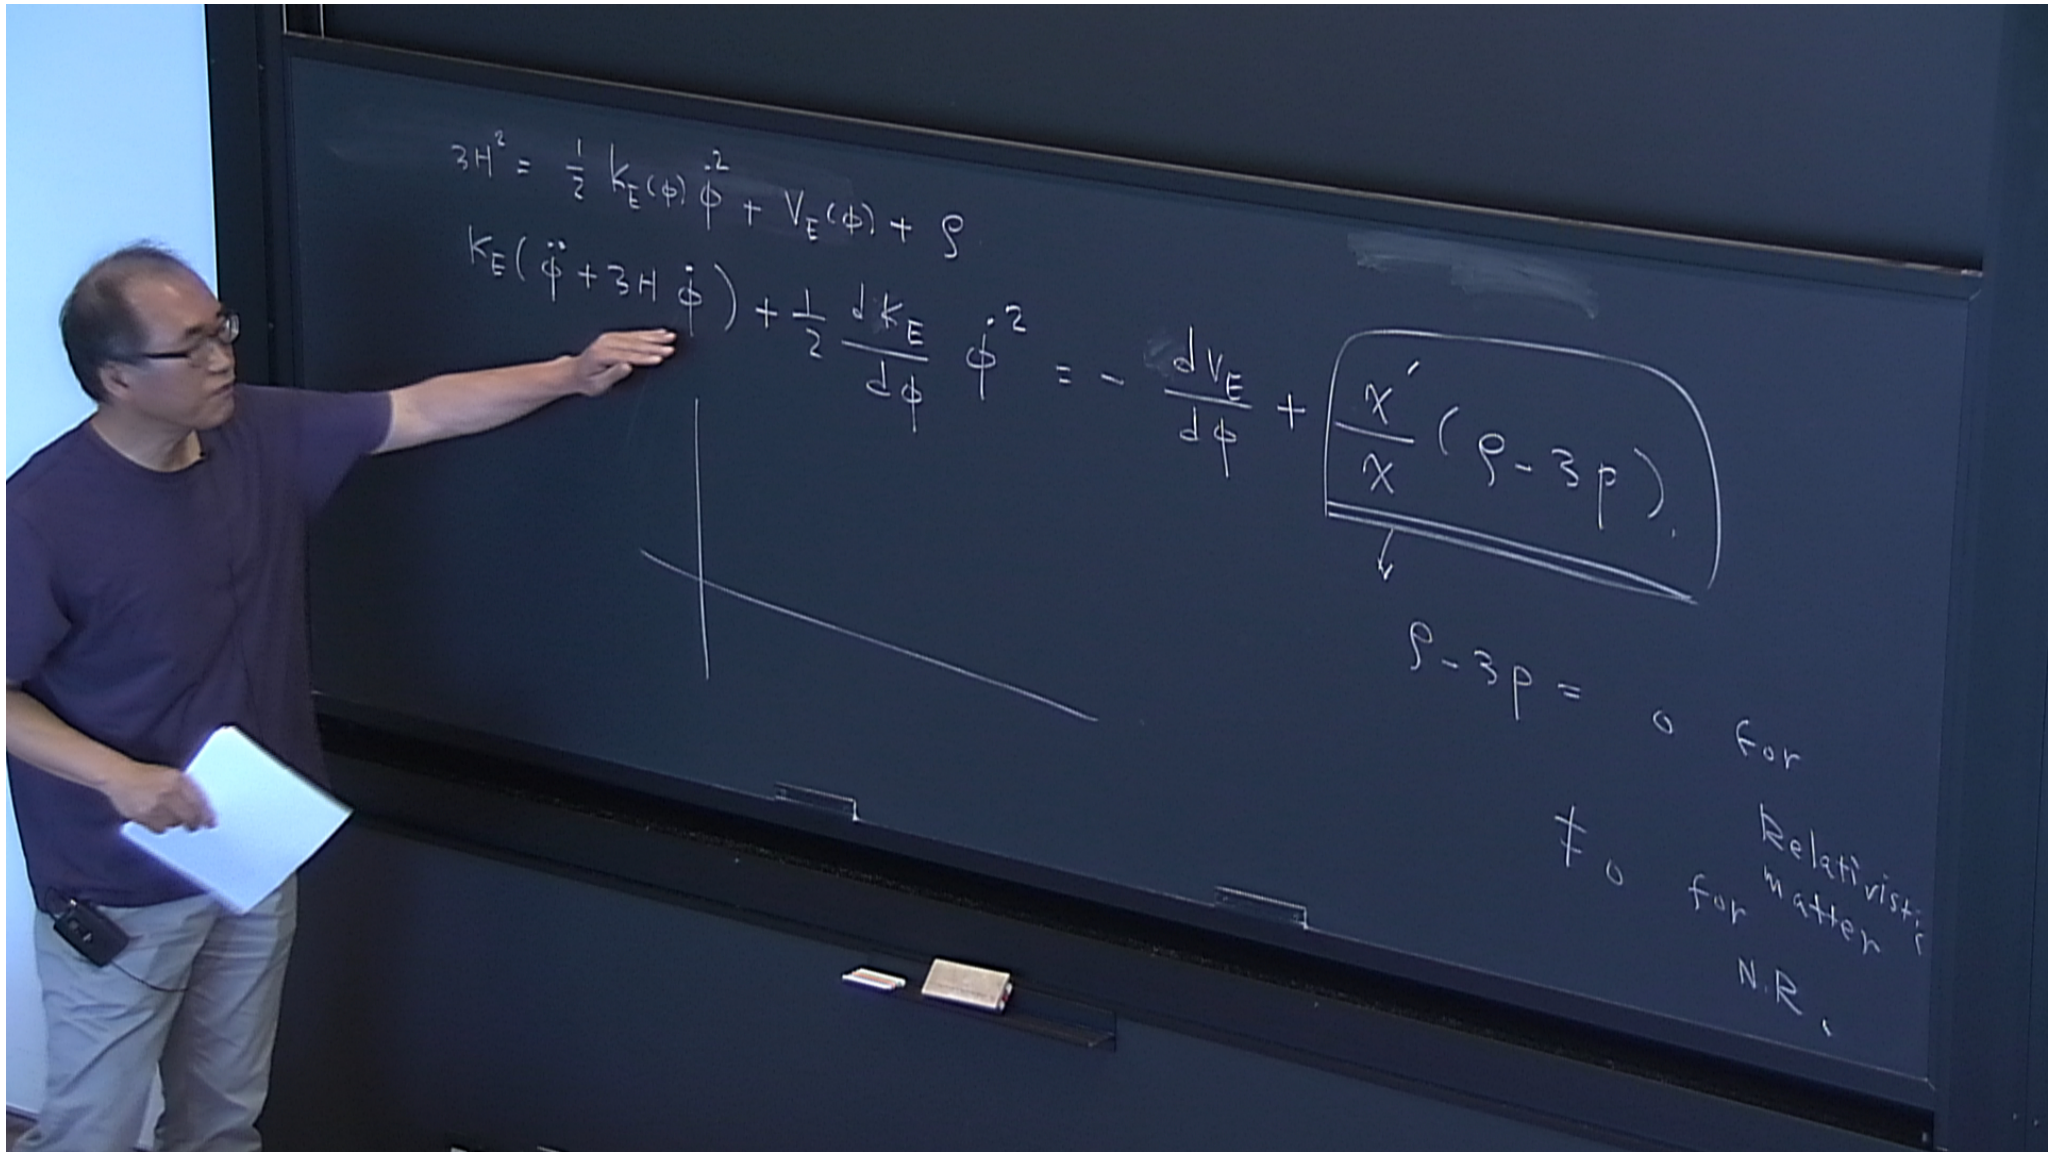 3H² = 1/2 K_E(φ) φ̇² + V_E(φ) + ρ
K_E(φ̈ + 3Hφ̇) + 1/2 dK_E/dφ φ̇² = - dV_E/dφ + χ′/χ (ρ - 3p).
↓
ρ - 3p = 0 for
Relativistic
matter
≠ 0 for
N.R.